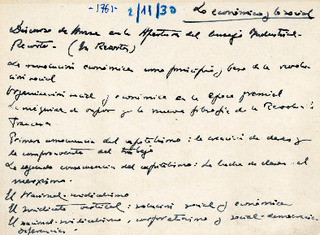 -1761- 2/11/30 Lo económico y lo social
Discurso de en la Apertura del Consejo Industrial-
Recorte- (En Recortes)
La revolución económica como principio y base de la revolu-
ción social
Organización social y económica en la época gremial
La máquina de vapor y la nueva filosofía de la Revolución
Francesa
Primera consecuencia del capitalismo: la creación de clases y
la compraventa del trabajo
La segunda consecuencia del capitalismo: La lucha de clases. el
marxismo.
El Nacional-sindicalismo
El sindicato vertical: solución social y económica
El nacional-sindicalismo, corporativismo y social-democracia.
diferencias.